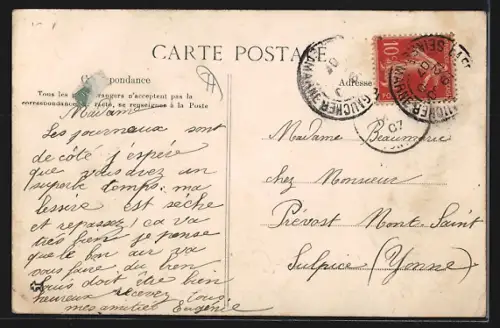 CARTE POSTALE
Correspondance
Tous les étrangers n'acceptent pas la
correspondance au recto, se renseigner à la Poste
Adresse
10
07
Madame
Les journaux sont
de côté j'espère
que vous avez un
superbe temps. ma
lessive est sèche
et repassez! ça va
très bien je pense
que le bon air va
vous faire du bien
Louis doit être bien
heureux recevez tous
mes amitiés Eugénie
Madame Beaumarie
chez Monsieur
Prévost Mont-Saint
Sulpice (Yonne)